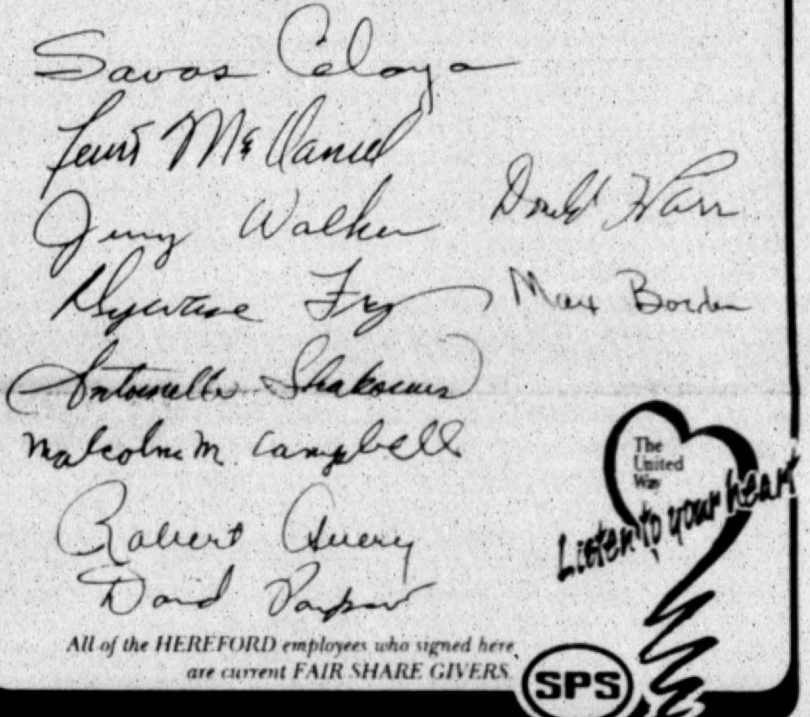 Savas Celaya
Lewis McDaniel
Jerry Walker
Donald Harr
Fry
Max Borden
Antoinette
Malcolm M. Campbell
Robert Avery
David
The
United
Way
Listen to your heart
All of the HEREFORD employees who signed here
are current FAIR SHARE GIVERS.
SPS